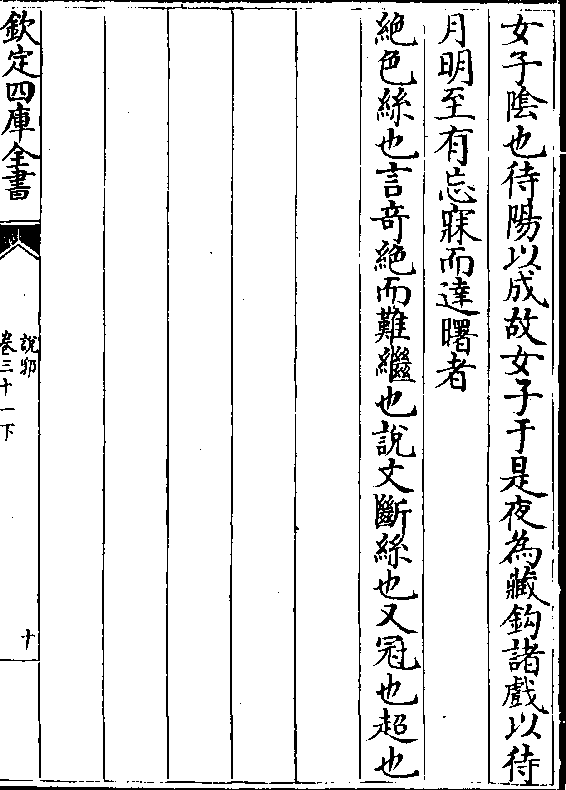 女子陰也待陽以成故女子于是夜為藏鈎諸戲以待
月明至有忘寐而達曙者
絶色絲也言奇絶而難繼也說文斷絲也又冠也超也
欽定四庫全書
說郛
卷三十一下
十